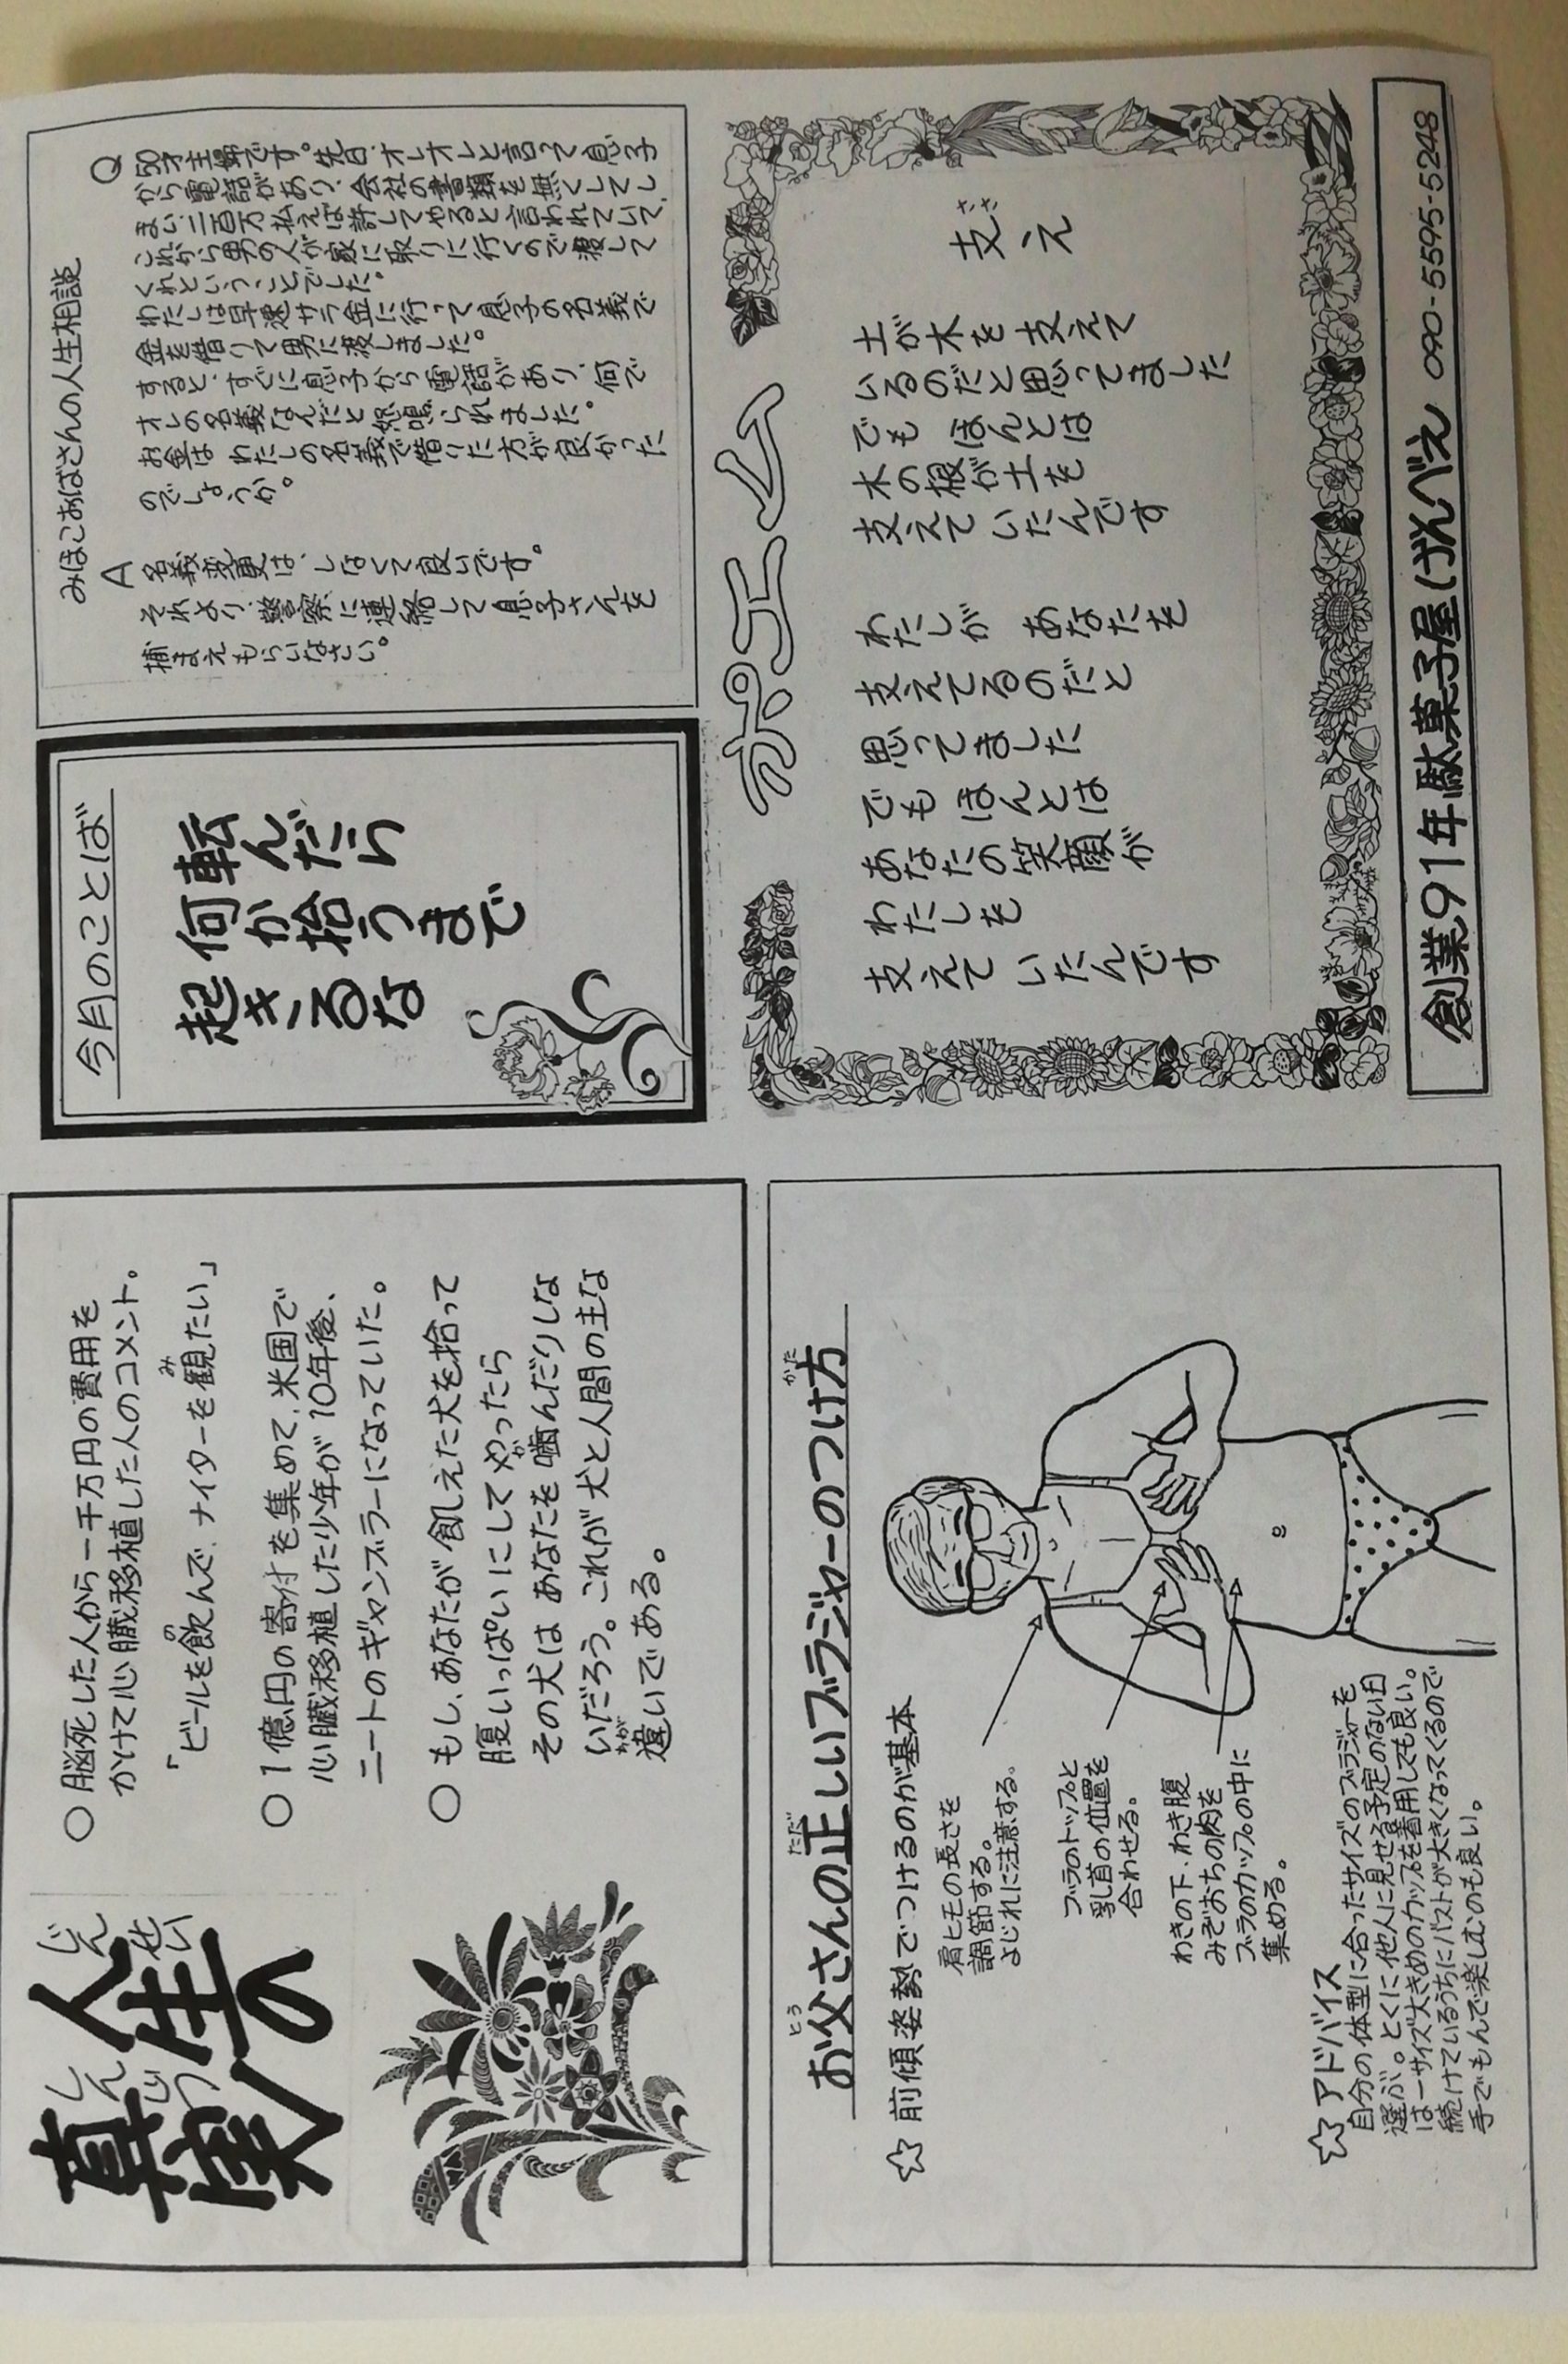 人生の
真実
じん
せい
しん
じつ
○ 脳死した人から一千万円の費用を
かけて心臓移植した人のコメント。
「ビールを飲んで、ナイターを観たい」
○ 1億円の寄付を集めて、米国で
心臓移植した少年が10年後、
ニートのギャンブラーになっていた。
○ もし、あなたが飢えた犬を拾って
腹いっぱいにしてやったら
その犬はあなたを噛んだりしな
いだろう。これが犬と人間の主な
違いである。
お父さんの正しいブラジャーのつけ方
☆ 前傾姿勢でつけるのが基本
肩ヒモの長さを
調節する。
よじれに注意する。
ブラのトップと
乳首の位置を
合わせる。
わきの下、わき腹
みぞおちの肉を
ブラのカップの中に
集める。
☆ アドバイス
自分の体型に合ったサイズのブラジャーを
選ぶ。とくに他人に見せる予定のない日
は一サイズ大きめのカップを着用しても良い。
続けているうちにバストが大きくなってくるので
手でもんで楽しむのも良い。
今月のことば
転んだら
何か拾うまで
起きるな
みほこおばさんの人生相談
Q 50才主婦です。先日、オレオレと言って息子
から電話があり、会社の書類を無くしてし
まい、二百万払えば許してやると言われていて、
これから男の人が家に取りに行くので渡して
くれということでした。
わたしは早速サラ金に行って息子の名義で
金を借りて男に渡しました。
すると、すぐに息子から電話があり、何で
オレの名義なんだと怒鳴られました。
お金はわたしの名義で借りた方が良かった
のでしょうか。
A 名義変更は、しなくて良いです。
それより、警察に連絡して息子さんを
捕まえもらいなさい。
ポエム
支え
土が木を支えて
いるのだと思ってました
でも ほんとは
木の根が土を
支えていたんです
わたしが あなたを
支えてるのだと
思ってました
でも ほんとは
あなたの笑顔が
わたしを
支えていたんです
創業91年駄菓子屋(げんべえ 090-5595-5248